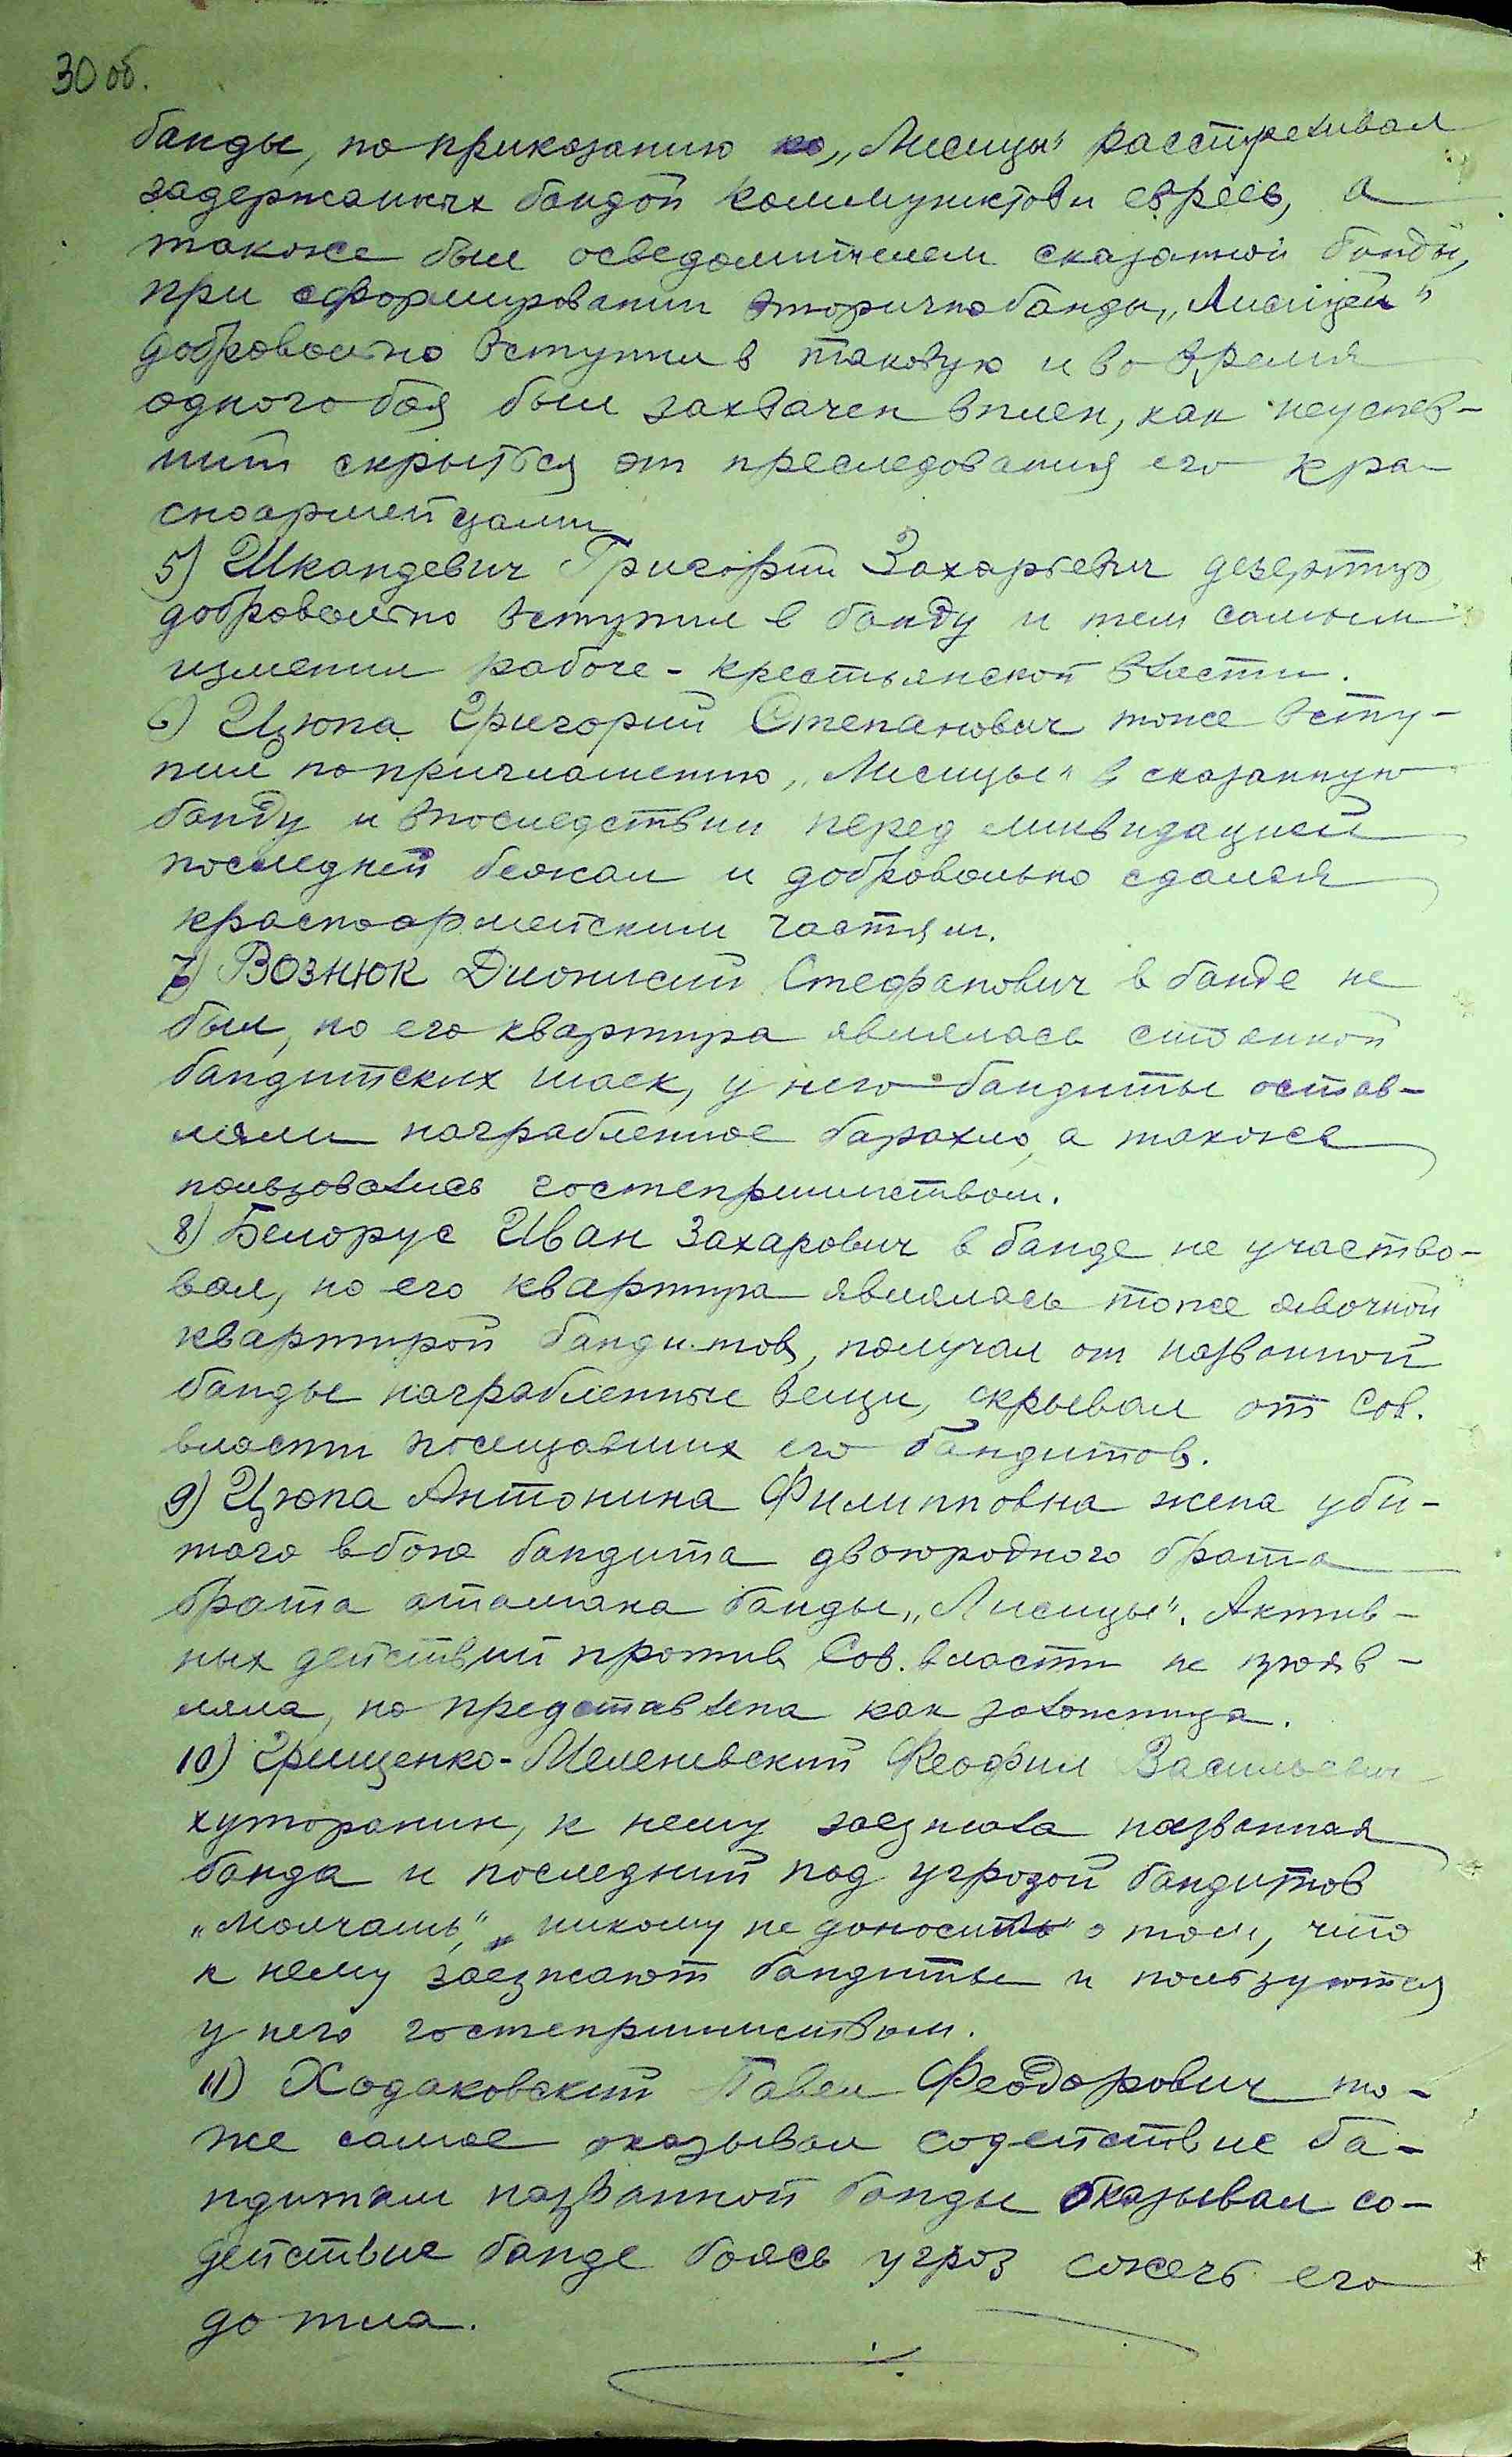 30 об.
банды, по приказанию „Лисицы" расстреливал
задержанных бандой коммунистов и евреев, а
также был осведомителем сказанной банды,
при сформировании вторично банды „Лисицей"
добровольно вступил в таковую и во время
одного боя был захвачен в плен, как неуспев-
ший скрыться от преследования его кра-
сноармейцами
5) Шкандевич Григорий Захарьевич дезертир
добровольно вступил в банду и тем самым
изменил рабоче-крестьянской власти.
6) Цюпа Григорий Степанович тоже всту-
пил по приглашению „Лисицы" в сказанную
банду и впоследствии перед ликвидацией
последней бежал и добровольно сдался
красноармейским частям.
7) Вознюк Дионисий Стефанович в банде не
был, но его квартира являлась стоянкой
бандитских шаек, у него бандиты остав-
ляли награбленное барахло, а также
пользовались гостеприимством.
8) Белорус Иван Захарович в банде не участво-
вал, но его квартира являлась тоже явочной
квартирой бандитов, получал от названной
банды награбленные вещи, скрывал от Сов.
власти посещавших его бандитов.
9) Цюпа Антонина Филипповна жена уби-
того в бою бандита двоюродного брата
брата атамана банды „Лисицы". Актив-
ных действий против Сов. власти не прояв-
ляла, но представлена как заложница.
10) Грищенко-Меленевский Феофил Васильевич
хуторянин, к нему заезжала названная
банда и последний под угрозой бандитов
„молчать", „никому не доносить" о том, что
к нему заезжают бандиты и пользуются
у него гостеприимством.
11) Ходаковский Павел Феодорович то-
же самое оказывал содействие ба-
ндитам названной банды оказывал со-
действие банде боясь угроз сжечь его
до тла.